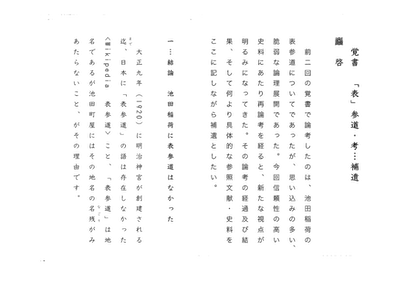 覚書 「表」参道・考…補遺
啓
前二回の覚書で論考したのは、池田稲荷の
表参道についてであったが、思い込みの多い、
脆弱な論理展開であった。今回信頼性の高い
史料にあたり再論考を経ると、新たな視点が
明るみになってきた。その論考の経過及び結
果、そして何より具体的な参照文献・史料を
ここに記しながら補遺としたい。
一…結論 池田稲荷に表参道はなかった
大正九年（1920）に明治神宮が創建される
迄、日本に「表参道」の語は存在しなかった
Wikipedia 表参道〉こと、「表参道」は地
名であるが池田町屋にはその地名の名残がみ
あたらないこと、がその理由です。